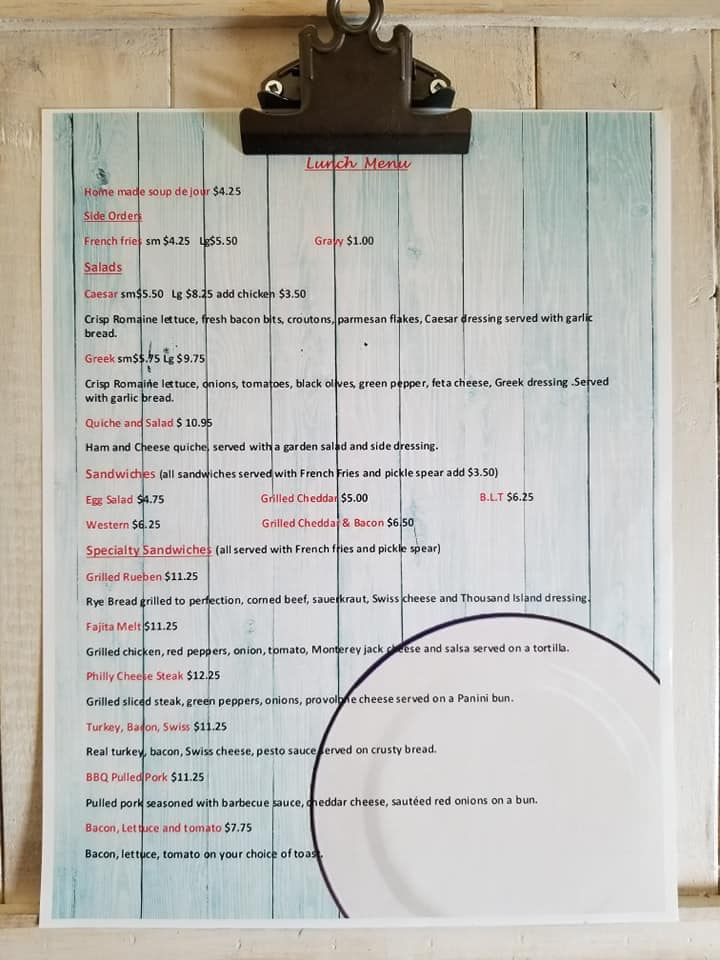 Lunch Menu
Home made soup de jour $4.25
Side Orders
French fries sm $4.25 Lg$5.50 Gravy $1.00
Salads
Caesar sm$5.50 Lg $8.25 add chicken $3.50
Crisp Romaine lettuce, fresh bacon bits, croutons, parmesan flakes, Caesar dressing served with garlic
bread.
Greek sm$5.75 Lg $9.75
Crisp Romaine lettuce, onions, tomatoes, black olives, green pepper, feta cheese, Greek dressing .Served
with garlic bread.
Quiche and Salad $ 10.95
Ham and Cheese quiche, served with a garden salad and side dressing.
Sandwiches (all sandwiches served with French Fries and pickle spear add $3.50)
Egg Salad $4.75 Grilled Cheddar $5.00 B.L.T $6.25
Western $6.25 Grilled Cheddar & Bacon $6.50
Specialty Sandwiches (all served with French fries and pickle spear)
Grilled Rueben $11.25
Rye Bread grilled to perfection, corned beef, sauerkraut, Swiss cheese and Thousand Island dressing.
Fajita Melt $11.25
Grilled chicken, red peppers, onion, tomato, Monterey jack cheese and salsa served on a tortilla.
Philly Cheese Steak $12.25
Grilled sliced steak, green peppers, onions, provolone cheese served on a Panini bun.
Turkey, Bacon, Swiss $11.25
Real turkey, bacon, Swiss cheese, pesto sauce served on crusty bread.
BBQ Pulled Pork $11.25
Pulled pork seasoned with barbecue sauce, cheddar cheese, sautéed red onions on a bun.
Bacon, Lettuce and tomato $7.75
Bacon, lettuce, tomato on your choice of toast.